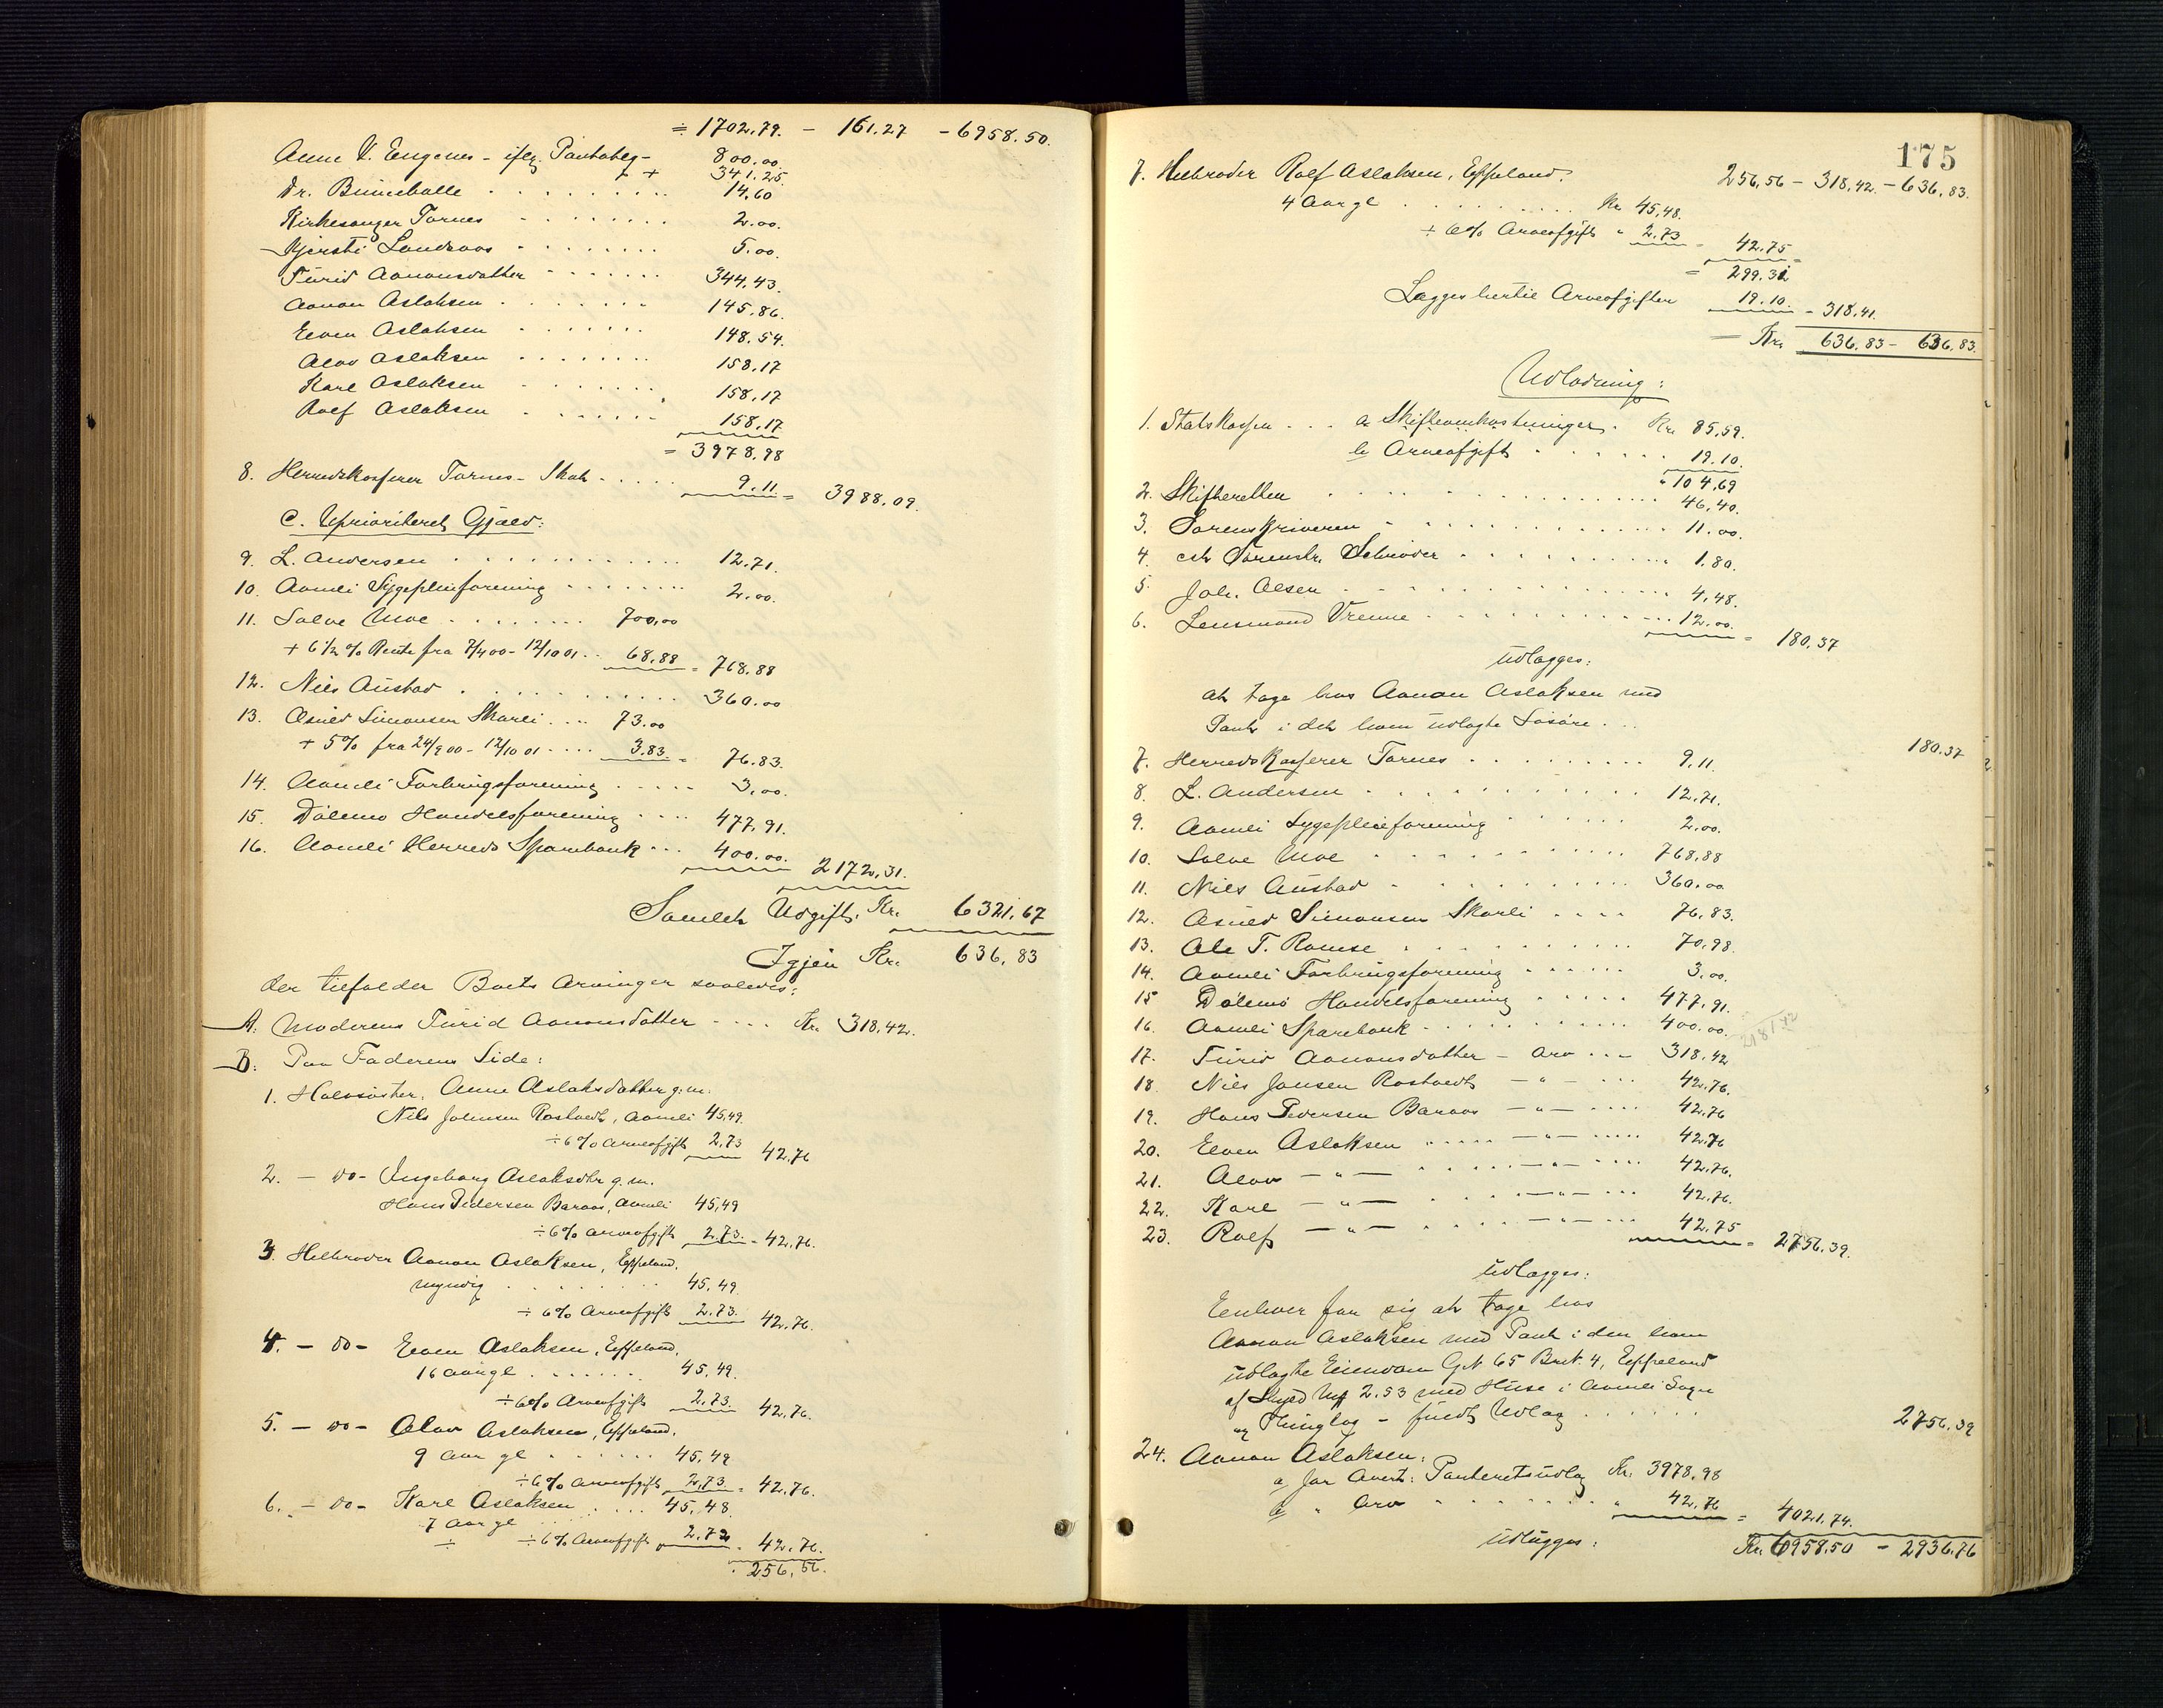 ÷ 1702.79. - 161.27 - 6958.50.
Anne V. Engenes - iflg. Pantoblg - 800.00.
+ 341.25
Dr. Bünneballe 14.60
Kirkesanger Tornes 2.00.
Kjersti Landsaas 5.00.
Turid Aanonsdatter 344.43.
Aanon Aslaksen 145.86.
Even Aslaksen 148.54.
Alov Aslaksen 158.17
Karl Aslaksen 158.17
Rolf Aslaksen 158.17
= 3978.98
8. Herredskasserer Tornes - Skat 9.11. = 3988.09.
C. Uprioriteret Gjæld:
9. L. Andersen 12.71.
10. Aamli Sygepleieforening 2.00.
11. Salve Moe 700.00
+ 6 1/2 % Rente fra 7/4 00 - 12/10 01 .. 68.88 = 768.88
12. Niels Austad 360.00
13. Asuled Simonsen Skarli .... 73.00
+ 5% fra 24/9 00 - 12/10 01 .... 3.83 = 76.83.
14. Aamli Forbrugsforening 3.00.
15. Dölemo Handelsforening 477.91.
16. Aamli Herreds Sparebank ... 400.00. 2172.31.
Samlet Udgift. Kr. 6321.67
Igjen Kr. 636.83
der tilfalder Boets Arvinger saaledes:
A. Moderens Turid Aanonsdatter .... Kr. 318.42.
B. Paa Faderens Side:
1. Halvsöster, Anne Aslaksdatter g.m.
Nils Johnsen Rostvedt, Aamli 45.49.
÷ 6% Arveafgift 2.73 42.76
2. - do - Ingeborg Aslaksdtr g.m.
Hans Pedersen Baraas, Aamli 45.49
÷ 6% Arveafgift 2.73. = 42.76.
3. Helbroder Aanon Aslaksen, Eppeland.
myndig 45.49.
÷ 6% Arveafgift 2.73. 42.76.
4. - do - Even Aslaksen, Eppeland.
16 aar gl 45.49.
÷ 6% Arveafgift 2.73. 42.76.
5. - do - Alov Aslaksen, Eppeland.
9 aar gl 45.49
÷ 6% Arveafgift 2.73 = 42.76.
6. - do - Karl Aslaksen 45.48.
7 aar gl
÷ ÷ 6% Arveafgift 2.72 = 42.76.
256.56.
175
7. Helbroder Rolf Aslaksen, Eppeland. 256.56 - 318.42 - 636.83.
4 Aar gl Kr. 45.48.
÷ 6% Arveafgift " 2.73 = 42.75
= 299.31
Lægges hertil Arveafgiften 19.10. = 318.41.
= Kr. 636.83 - 636.83.
Udlodning:
1. Statskassen ... a Skifteomkostninger. Kr. 85.59.
b Arveafgift 19.10.
" 104.69
2. Skifteretten 46.40.
3. Sorenskriveren 11.00.
4. cst. Sorenskr. Schröder 1.80.
5. Joh. Olsen 4.48.
6. Lensmand Vrenne 12.00. = 180.37
udlægges:
at tage hos Aanon Aslaksen med
Pant i det ham udlagte Lösöre. 180.37
7. Herredskasserer Tornes 9.11.
8. L. Andersen 12.71.
9. Aamli Sygepleieforening 2.00.
10. Salve Moe 768.88
11. Niels Austad 360.00
12. Asuled Simonsen Skarli 76.83.
13. Ole T. Ramse 70.98
14. Aamli Forbrugsforening 3.00.
15 Dölemo Handelsforening 477.91.
16. Aamli Sparebank 400.00.
17. Turid Aanonsdatter - Arv ... 318.42
18. Niels Jonsen Rostvedt - " - ... 42.76.
19. Hans Pedersen Baraas - " - .... 42.76
20. Even Aslaksen - " - 42.76
21. Alov - " - - " - 42.76.
22. Karl - " - - " - 42.76.
23. Rolf - " - - " - 42.75 = 2756.39.
udlægges:
Eenhver for sig at tage hos
Aanon Aslaksen med Pant i den ham
udlagte Eiendom G.N. 65 Br.N. 4, Eppeland
af Skyld Mk 2.53 med Huse i Aamli Sogn
og Thinglag - fuldt Udlæg 2756.39
24. Aanon Aslaksen:
a for Overt. Panteretsudlæg Kr. 3978.98
b " Arv " 42.76 = 4021.74.
udlægges: Kr. 6958.50 - 2936.76